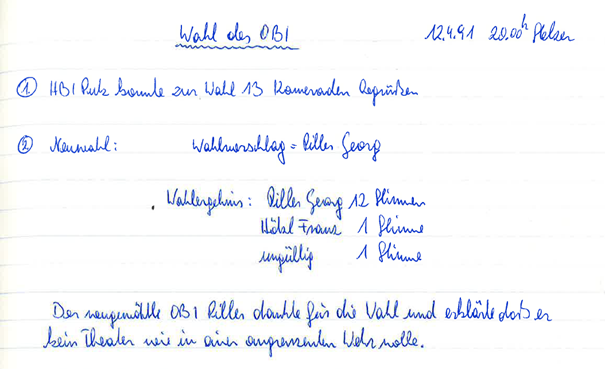 Wahl des OBI 12.4.91 20.00h
① HBI Putz konnte zur Wahl 13 Kameraden begrüßen
② Neuwahl: Wahlvorschlag = Piller Georg
Wahlergebnis: Piller Georg 12 Stimmen
Hötzl Franz 1 Stimme
ungültig 1 Stimme
Der neugewählte OBI Piller dankte für die Wahl und erklärte daß er
kein Theater wie in einer angrenzenten Wehr wolle.